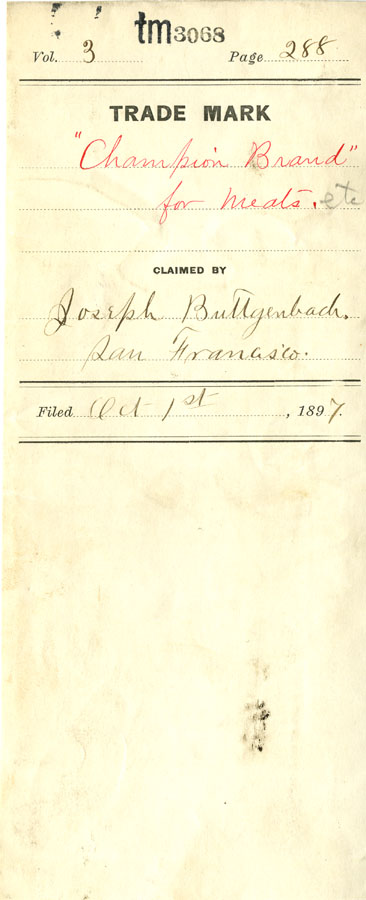 tm3068
Vol. 3 Page 288
TRADE MARK
"Champion Brand"
for Meats. etc
CLAIMED BY
Joseph Buttgenbach.
San Francisco.
Filed Oct 1st, 1897.